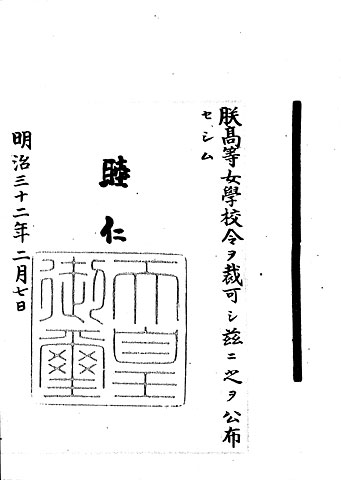 朕高等女學校令ヲ裁可シ茲ニ之ヲ公布
セシム
睦仁
天皇
御璽
明治三十二年二月七日